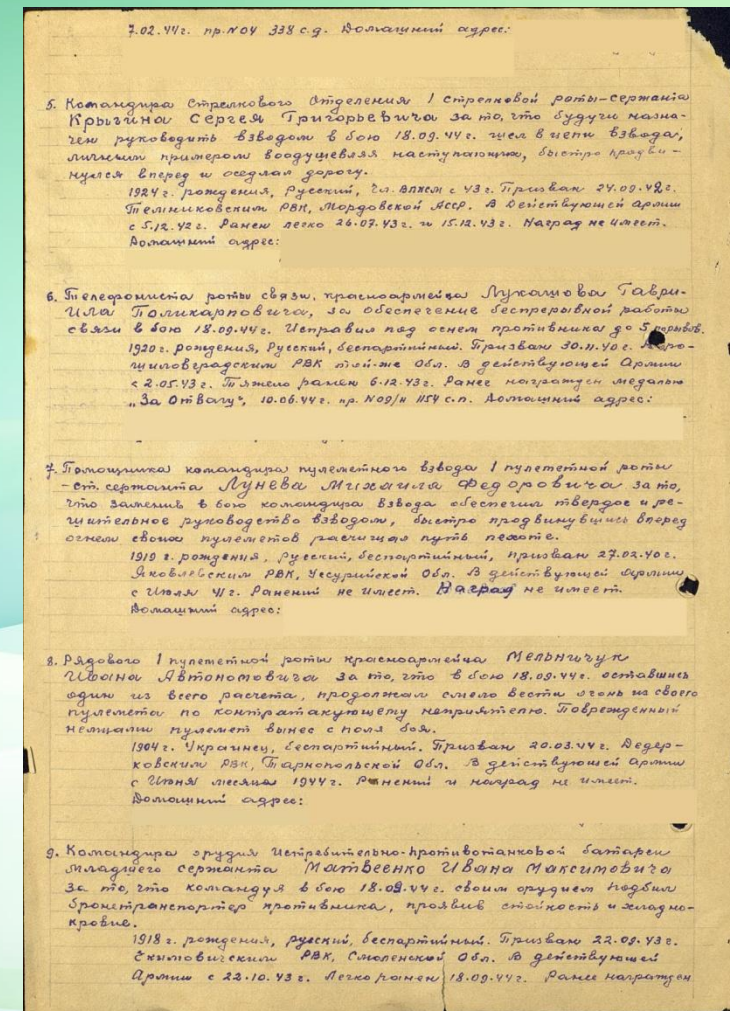 7.02.44г. пр. №04 338 с.д. Домашний адрес:
5. Командира стрелкового отделения 1 стрелковой роты-сержанта
Крыгина Сергея Григорьевича за то, что будучи назна-
чен руководить взводом в бою 18.09.44г. шел в цепи взвода,
личным примером воодушевляя наступающих, быстро продви-
нулся вперед и оседлал дорогу.
1924 г. рождения, Русский, чл. ВЛКСМ с 43 г. Призван 24.09.42г.
Темниковским РВК, Мордовской АССР. В Действующей Армии
с 5.12.42г. Ранен легко 26.07.43г. и 15.12.43г. Наград не имеет.
Домашний адрес:
6. Телефониста роты связи, красноармейца Лукашова Гаври-
ила Поликарповича, за обеспечение беспрерывной работы
связи в бою 18.09.44г. Исправил под огнем противника до 5 порывов.
1920 г. рождения, Русский, беспартийный. Призван 30.11.40г. Воро-
шиловградским РВК той-же Обл. В действующей Армии
с 2.05.43г. Тяжело ранен 6.12.43г. Ранее награжден медалью
"За Отвагу", 10.06.44г. пр. №09/н 1154 с.п. Домашний адрес:
7. Помощника командира пулеметного взвода 1 пулеметной роты
-ст. сержанта Лунева Михаила Федоровича за то,
что заменив в бою командира взвода обеспечил твердое и ре-
шительное руководство взводом, быстро продвинувшись вперед
огнем своих пулеметов расчищая путь пехоте.
1919 г. рождения, Русский, беспартийный, призван 27.02.40г.
Яковлевским РВК, Уссурийской Обл. В действующей Армии
с Июля 41г. Ранений не имеет. Наград не имеет.
Домашний адрес:
8. Рядового 1 пулеметной роты красноармейца Мельничук
Ивана Автономовича за то, что в бою 18.09.44г. оставшись
один из всего расчета, продолжал смело вести огонь из своего
пулемета по контратакующему неприятелю. Поврежденный
немцами пулемет вынес с поля боя.
1904 г. Украинец, беспартийный. Призван 20.03.44г. Дедер-
ковским РВК, Тарнопольской Обл. В действующей Армии
с Июня месяца 1944г. Ранений и наград не имеет.
Домашний адрес:
9. Командира орудия Истребительно-противотанковой батареи
младшего сержанта Матвеенко Ивана Максимовича
за то, что командуя в бою 18.09.44г. своим орудием подбил
бронетранспортер противника, проявив стойкость и хладно-
кровие.
1918 г. рождения, русский, беспартийный. Призван 22.09.43г.
Екимовичским РВК, Смоленской Обл. В действующей
Армии с 22.10.43г. Легко ранен 18.09.44г. Ранее награжден